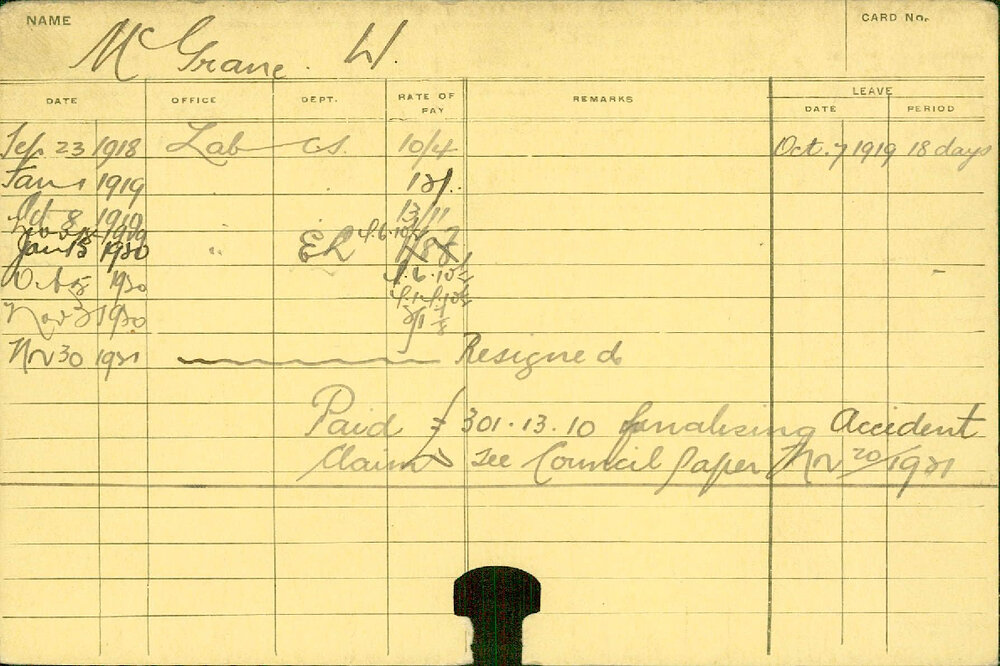 NAME McGrane. W. CARD No.
DATE OFFICE DEPT. RATE OF PAY REMARKS LEAVE
DATE PERIOD
Sep 23 1918 Lab CS. 10/4 Oct. 7 1919 18 days
Jan 1 1919 12/.
Oct 8 1919 13/11
Jan 13 1920 " EL
Oct 1920
Nov 1920
Nov 30 1921 Resigned
Paid £301.13.10 finalising Accident
Claim See Council Paper Nov 20/1921